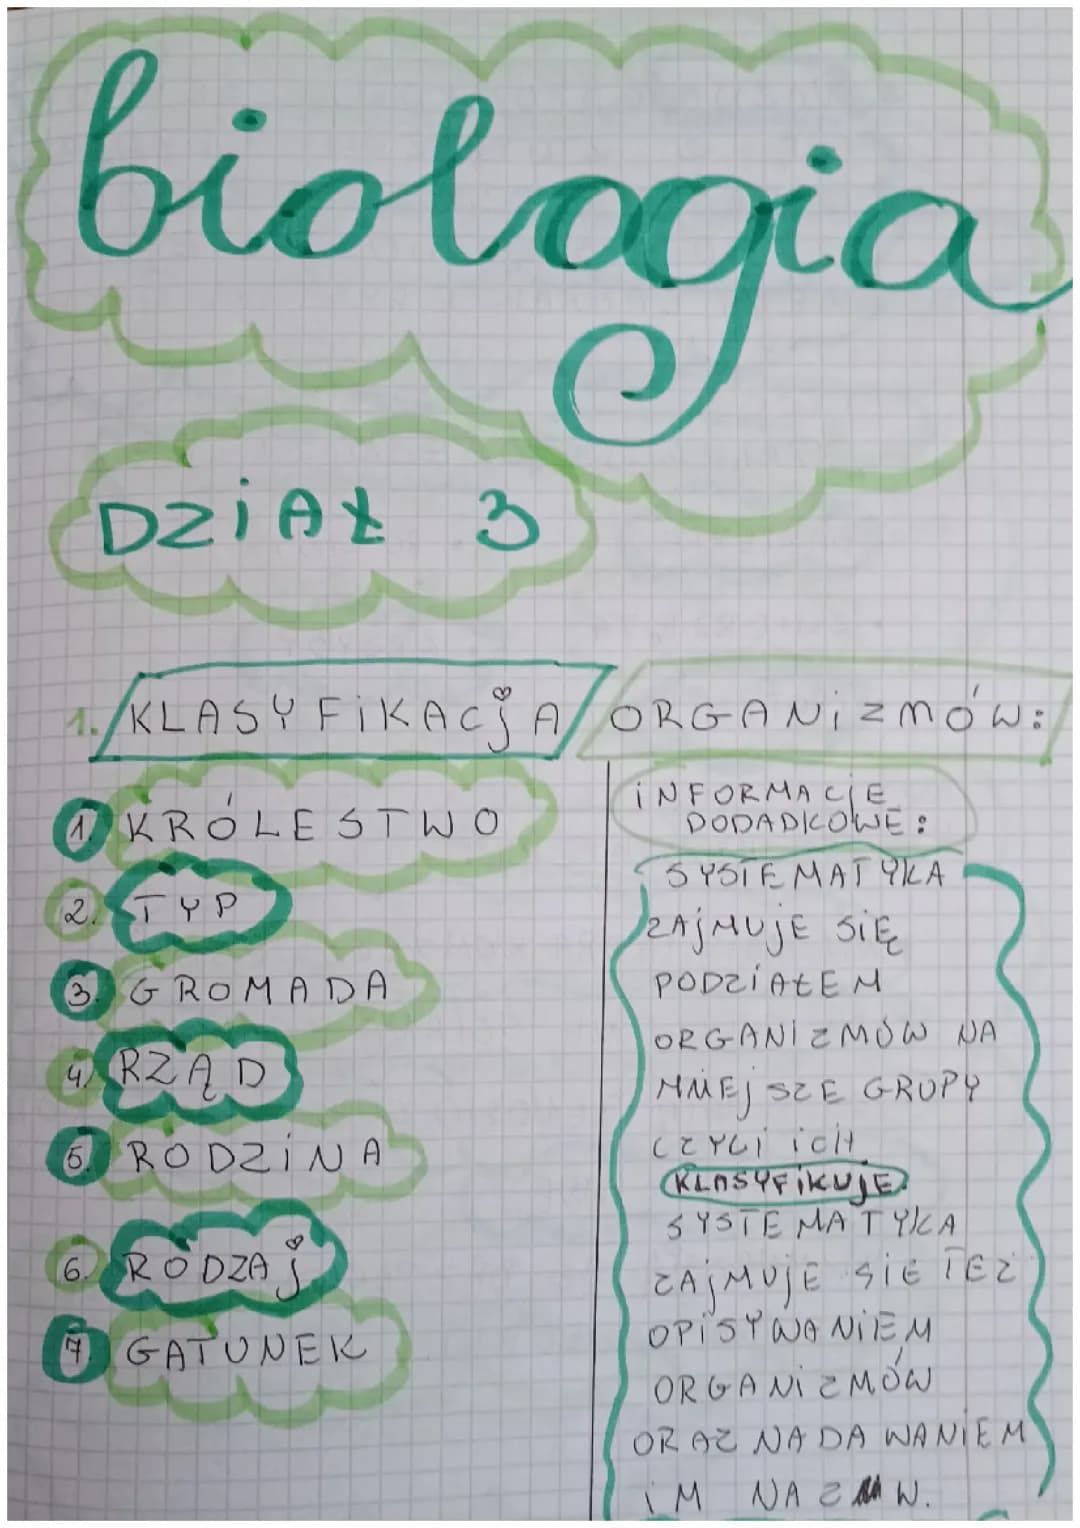 biologia
DZiAŁ 3
1. KLASYFiKACjA ORGANiZMÓW:
1. KRÓLESTWO
2. TYP
3. GROMADA
4. RZĄD
5. RODZiNA
6. RODZAj
7 GATUNEK
iNFORMACjE
DODADKOWE:
SYSTEMATYKA
ZAjMUjE SiĘ
PODZiAŁEM
ORGANiZMÓW NA
MNiEjSZE GRUPY
CZYLi iCH
KLASYFiKUjE.
SYSTEMATYKA
ZAjMUjE SiE TEZ
OPiSYWANiEM
ORGANiZMÓW
ORAZ NADAWANiEM
iM NAZW.